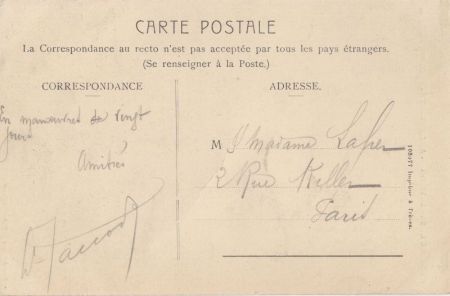 CARTE POSTALE
La Correspondance au recto n'est pas acceptée par tous les pays étrangers.
(Se renseigner à la Poste.)
CORRESPONDANCE
En manœuvres de vingt
jours
Amitiés
ADRESSE.
M Madame
2 Rue Keller
Paris
Imprimé à Trèves.